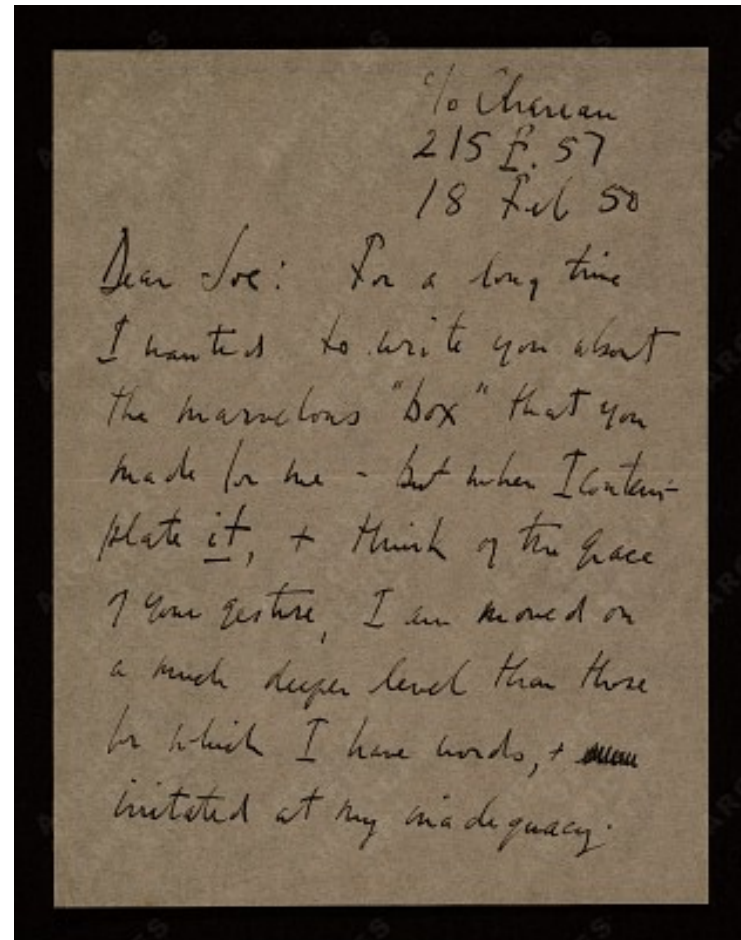 c/o Chareau
215 E. 57
18 Feb 50
Dear Joe: For a long time
I wanted to write you about
the marvelous "box" that you
made for me - but when I contem-
plate it, + think of the grace
of your gesture, I am moved on
a much deeper level than those
for which I have words, +
irritated at my inadequacy.